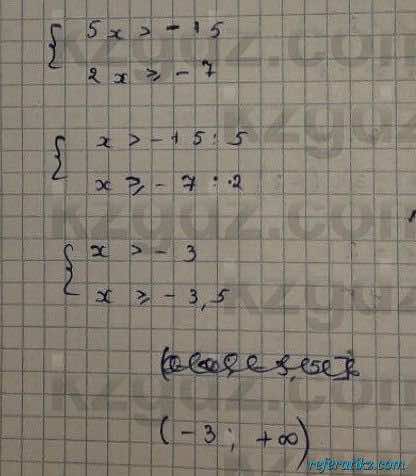 5x > -15
2x ≥ -7
x > -15 : 5
x ≥ -7 : 2
x > -3
x ≥ -3,5
(-3; +∞)
referatikz.com